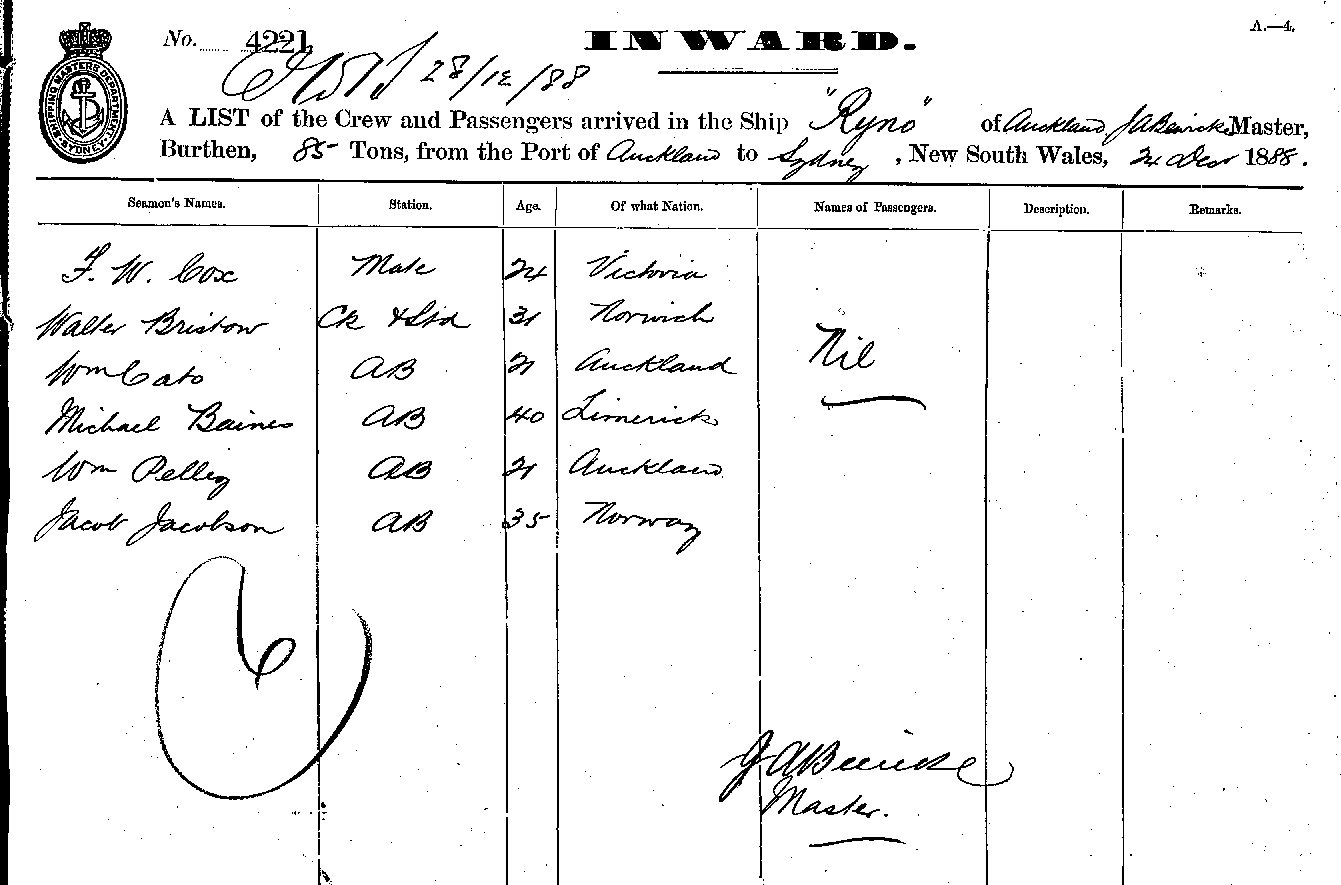 No. 4221 INWARD. A.—4.
28/12/88
SHIPPING MASTERS DEPARTMENT SYDNEY
A LIST of the Crew and Passengers arrived in the Ship "Ryno" of Auckland, Master,
Burthen, 85 Tons, from the Port of Auckland to Sydney, New South Wales, 24 Decr 1888.
Seamen's Names. Station. Age. Of what Nation. Names of Passengers. Description. Remarks.
F. W. Cox Mate 24 Victoria
Walter Bristow Ck & Std 31 Norwich
Nil
Wm Cato AB 21 Auckland
Michael Baines AB 40 Limerick
Wm Pelling AB 21 Auckland
Jacob Jacobson AB 35 Norway
6
Master.